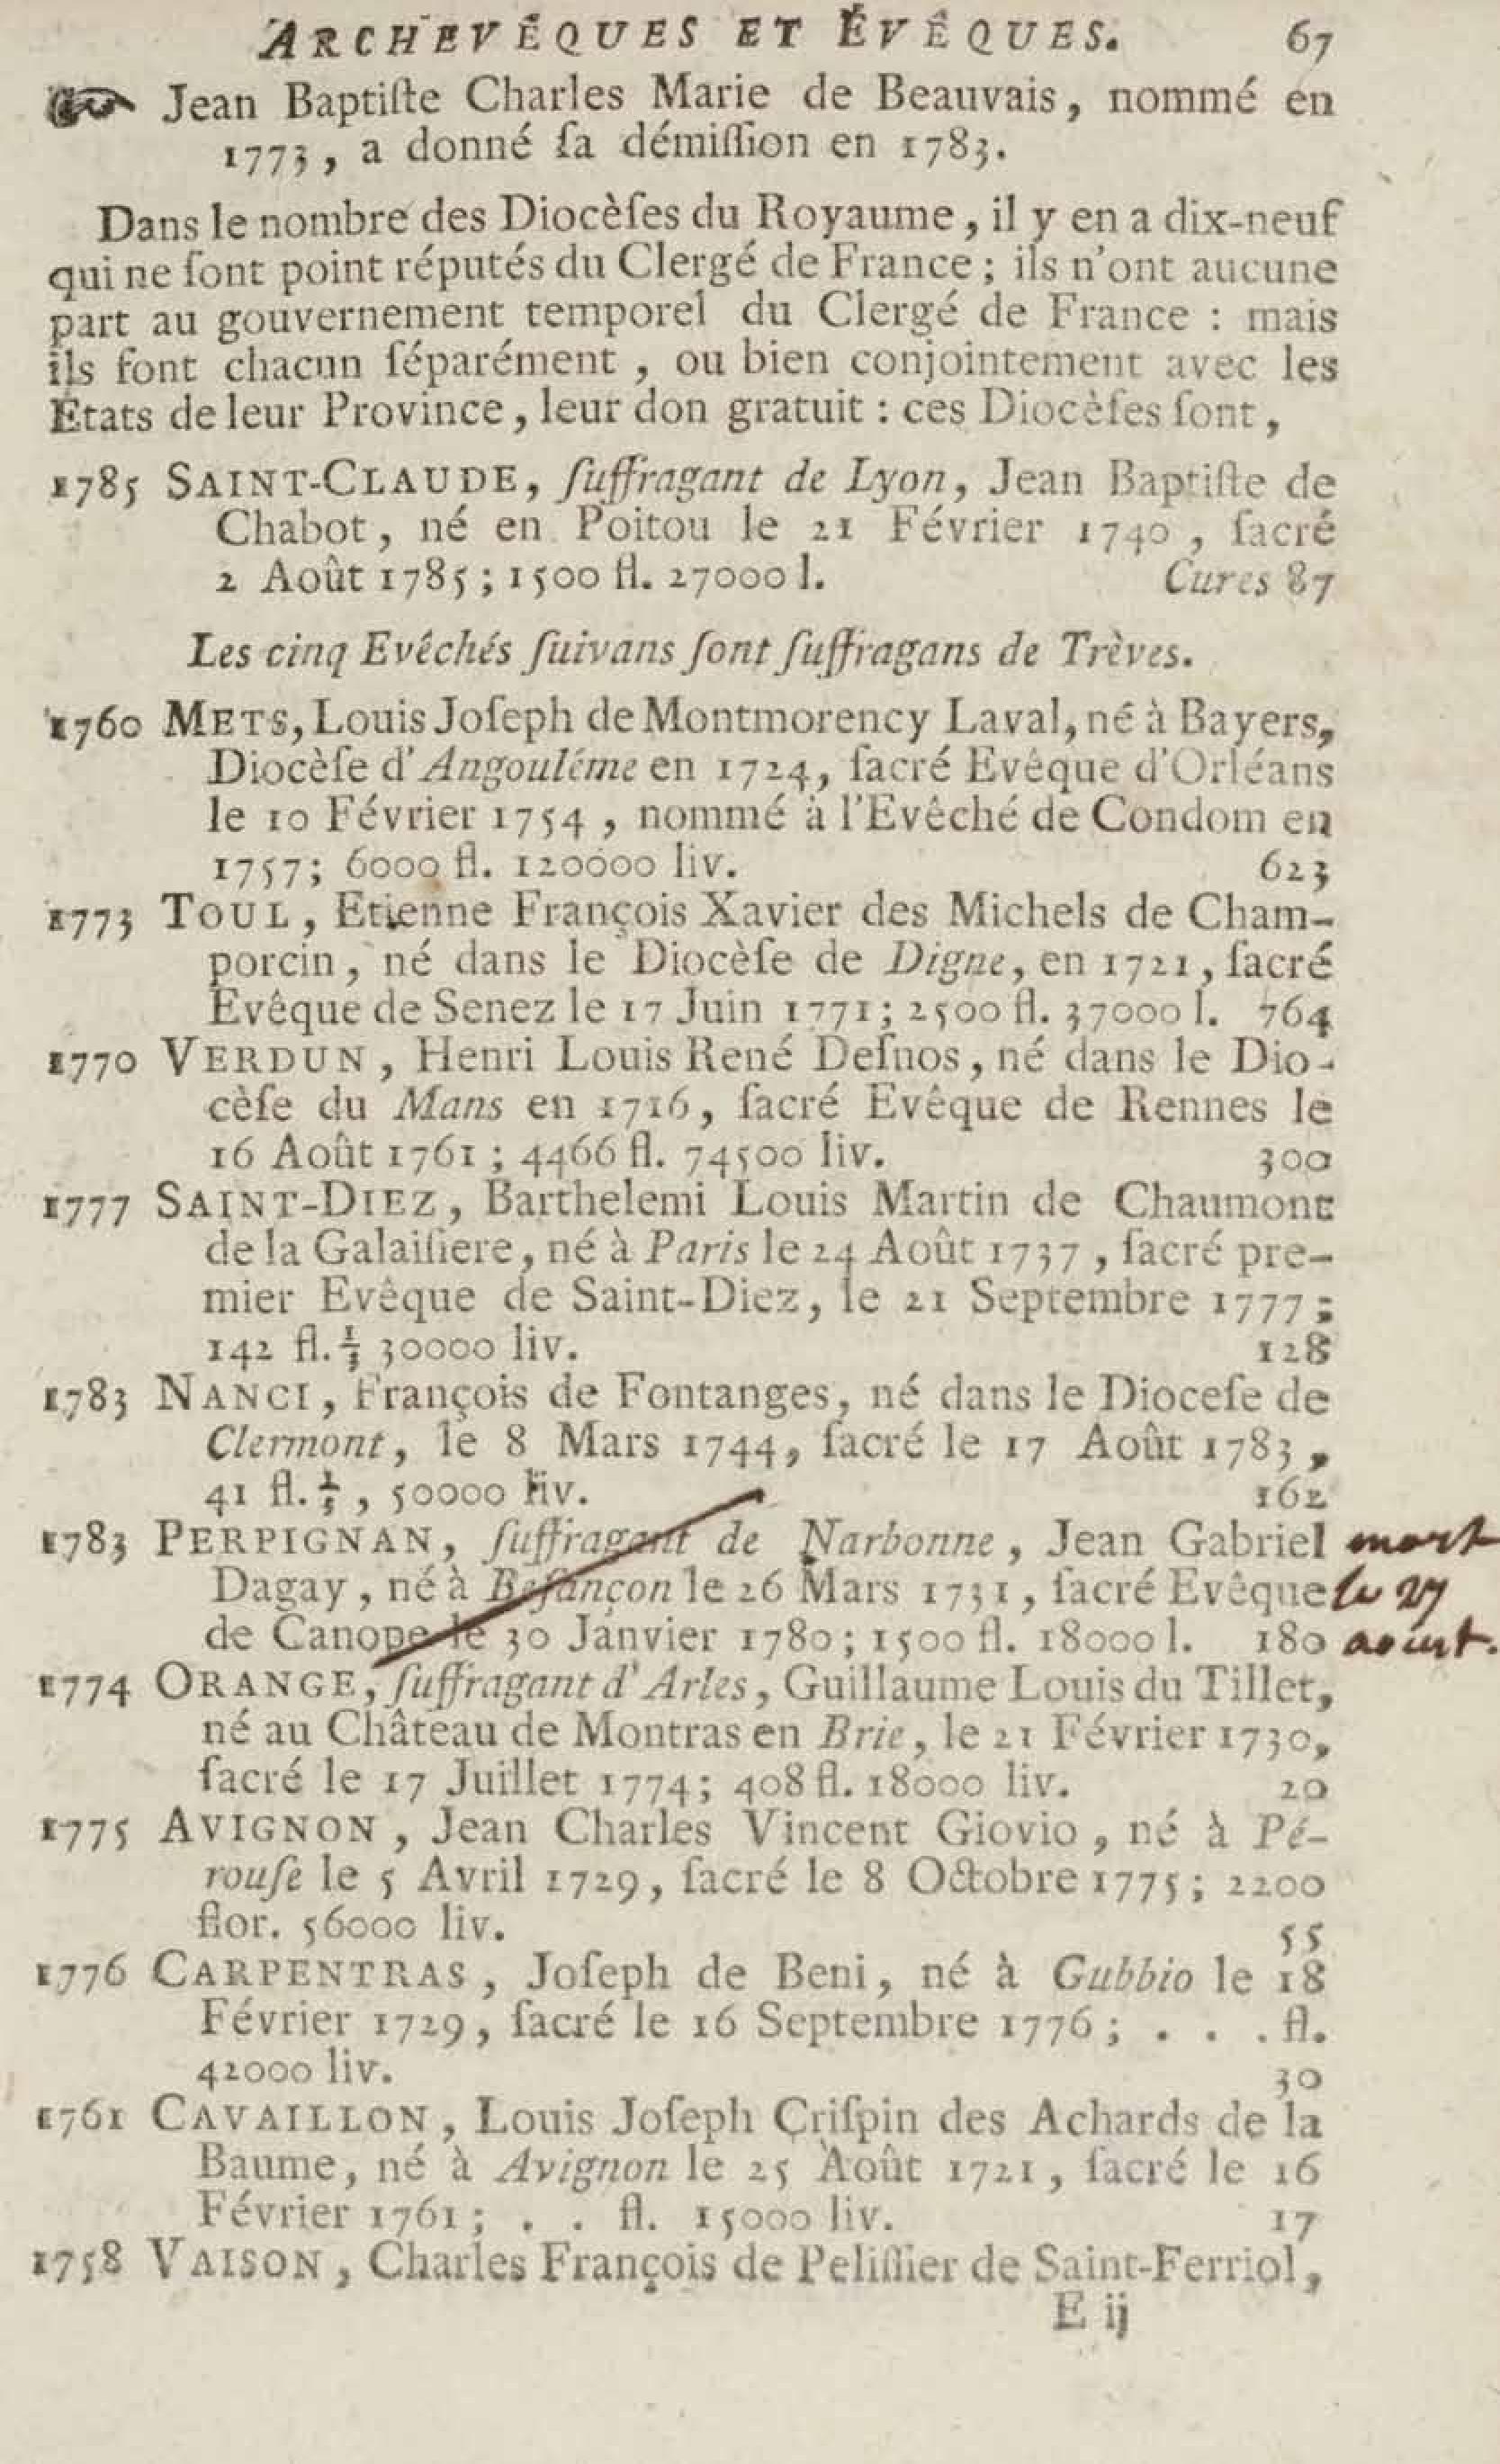 ARCHEVÊQUES ET ÉVÊQUES. 67
☞ Jean Baptiſte Charles Marie de Beauvais, nommé en
1773, a donné ſa démiſſion en 1783.
Dans le nombre des Diocèſes du Royaume, il y en a dix-neuf
qui ne ſont point réputés du Clergé de France; ils n'ont aucune
part au gouvernement temporel du Clergé de France : mais
ils font chacun ſéparément, ou bien conjointement avec les
Etats de leur Province, leur don gratuit : ces Diocèſes ſont,
1785 SAINT-CLAUDE, ſuffragant de Lyon, Jean Baptiſte de
Chabot, né en Poitou le 21 Février 1740, ſacré
2 Août 1785; 1500 fl. 27000 l. Cures 87
Les cinq Evêchés ſuivans ſont ſuffragans de Trèves.
1760 METS, Louis Joſeph de Montmorency Laval, né à Bayers,
Diocèſe d'Angoulême en 1724, ſacré Evêque d'Orléans
le 10 Février 1754, nommé à l'Evêché de Condom en
1757; 6000 fl. 120000 liv. 623
1773 TOUL, Etienne François Xavier des Michels de Cham-
porcin, né dans le Diocèſe de Digne, en 1721, ſacré
Evêque de Senez le 17 Juin 1771; 2500 fl. 37000 l. 764
1770 VERDUN, Henri Louis René Deſnos, né dans le Dio-
cèſe du Mans en 1716, ſacré Evêque de Rennes le
16 Août 1761; 4466 fl. 74500 liv. 300
1777 SAINT-DIEZ, Barthelemi Louis Martin de Chaumont
de la Galaiſiere, né à Paris le 24 Août 1737, ſacré pre-
mier Evêque de Saint-Diez, le 21 Septembre 1777;
142 fl. ⅓ 30000 liv. 128
1783 NANCI, François de Fontanges, né dans le Dioceſe de
Clermont, le 8 Mars 1744, ſacré le 17 Août 1783,
41 fl. ⅓, 50000 liv. 162
1783 PERPIGNAN, ſuffragant de Narbonne, Jean Gabriel mort
Dagay, né à Beſançon le 26 Mars 1731, ſacré Evêque le 27
de Canope le 30 Janvier 1780; 1500 fl. 18000 l. 180 aoust.
1774 ORANGE, ſuffragant d'Arles, Guillaume Louis du Tillet,
né au Château de Montras en Brie, le 21 Février 1730,
ſacré le 17 Juillet 1774; 408 fl. 18000 liv. 20
1775 AVIGNON, Jean Charles Vincent Giovio, né à Pé-
rouſe le 5 Avril 1729, ſacré le 8 Octobre 1775; 2200
flor. 56000 liv. 55
1776 CARPENTRAS, Joſeph de Beni, né à Gubbio le 18
Février 1729, ſacré le 16 Septembre 1776; . . . fl.
42000 liv. 30
1761 CAVAILLON, Louis Joſeph Criſpin des Achards de la
Baume, né à Avignon le 25 Août 1721, ſacré le 16
Février 1761; . . fl. 15000 liv. 17
1758 VAISON, Charles François de Peliſſier de Saint-Ferriol,
E ij